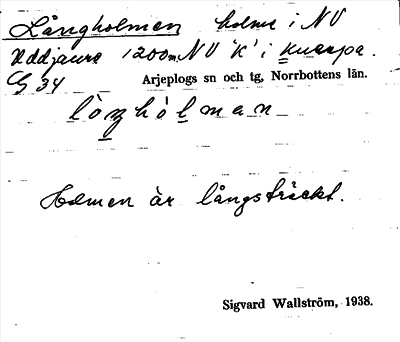 Långholmen holme i NV
Uddjaure 1200 m NV 'K' i Kuorpa.
Cg 34 Arjeplogs sn och tg, Norrbottens län.
lòŋhòlman
Holmen är långsträckt.
Sigvard Wallström, 1938.